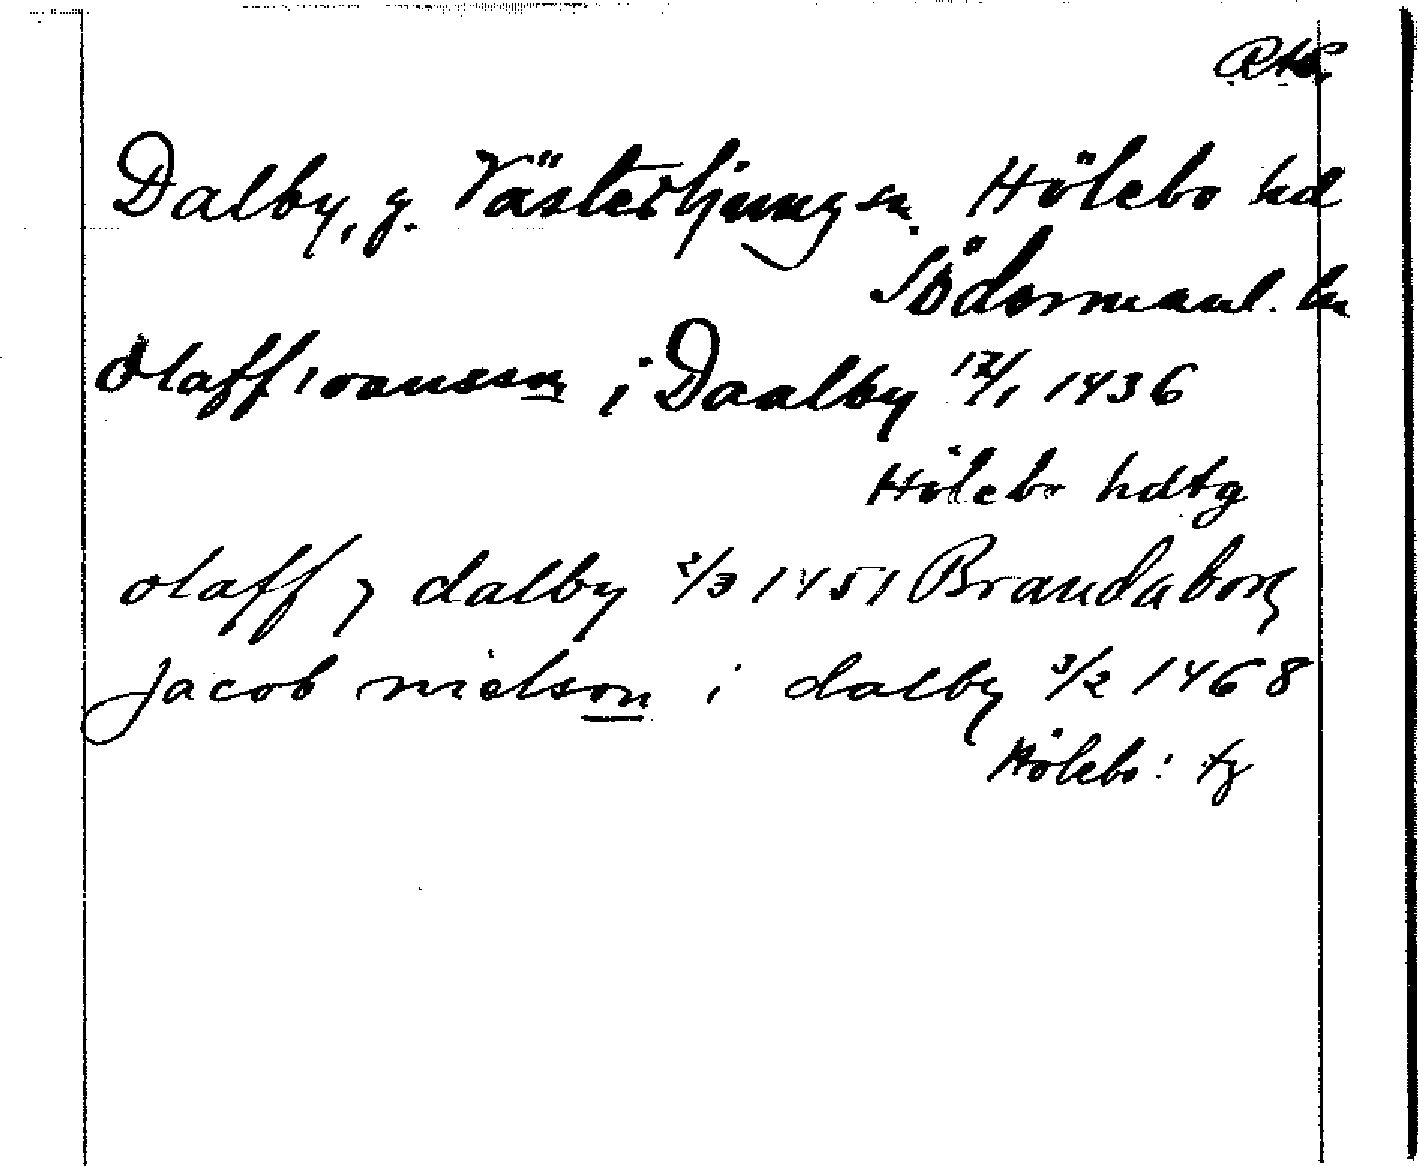 Dalby, g. Västerljung sn. Hölebo hd
Södermanl. ln
Olaff ioansson i Daalby 12/1 1436
Hölebo hdtg
olaff y dalby 2/3 1451 Brandaborg
Jacob nielson i dalby 3/2 1468
Hölebo: tg